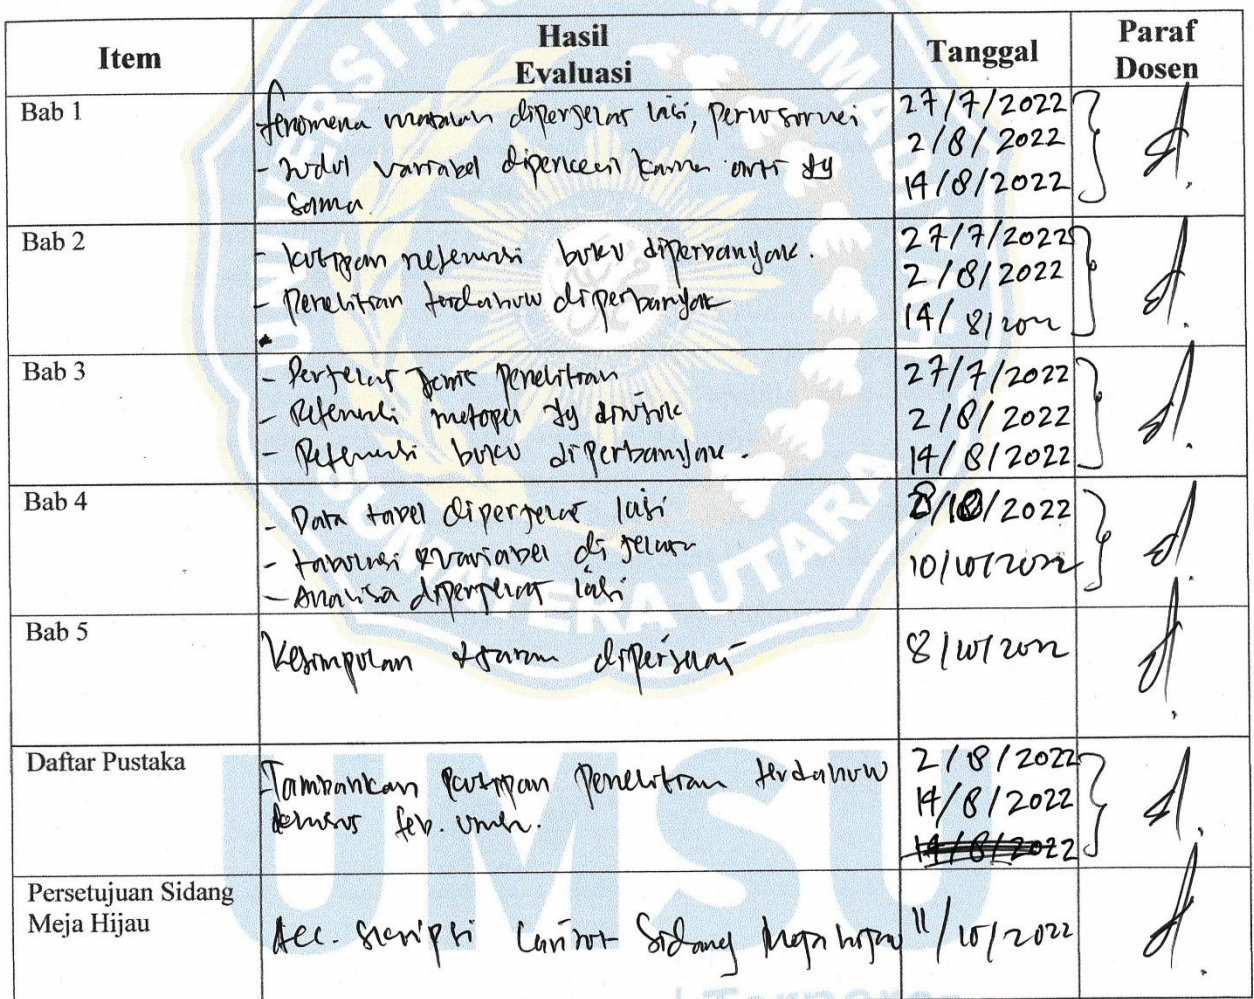 Item Hasil Evaluasi Tanggal Paraf Dosen
Bab 1
fenomena masalah diperjelas lagi, perlu survei
- Judul variabel diperkecil karna arti yg
sama.
27/7/2022
2/8/2022
14/8/2022
Bab 2
- kutipan referensi buku diperbanyak.
- Penelitian terdahulu diperbanyak
27/7/2022
2/8/2022
14/8/2022
Bab 3
- Perjelas Jenis Penelitian
- Referensi metopel yg dirujuk
- Referensi buku diperbanyak.
27/7/2022
2/8/2022
14/8/2022
Bab 4
- Data tabel diperjelas lagi
- tabulasi variabel di
- Analisa diperjelas lagi
8/10/2022
10/10/2022
Bab 5
Kesimpulan & saran
8/10/2022
Daftar Pustaka
- Tambahkan kutipan penelitian terdahulu
feb. umsu.
2/8/2022
14/8/2022
14/8/2022
Persetujuan Sidang
Meja Hijau
Acc. skripsi lanjut Sidang Meja hijau
11/10/2022
SUMATERA UTARA
UMSU